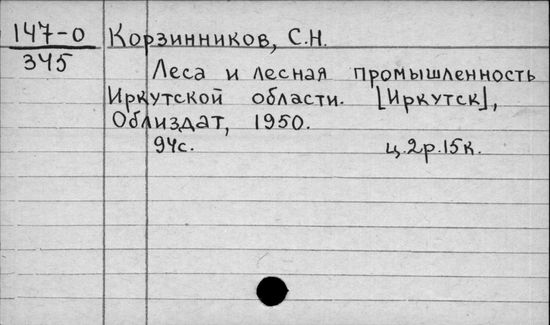 147-0 Корзинников, С.Н.
345
Леса и лесная промышленность
Иркутской области. [Иркутск],
Облиздат, 1950.
94с. ц.2р.15к.